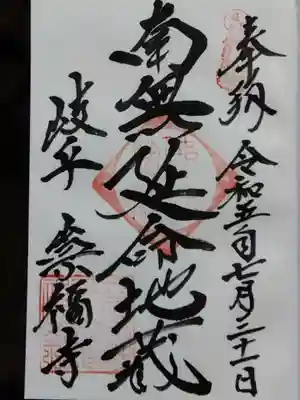 奉納 令和五年七月二十一日
南無延命地蔵
岐阜 崇福寺